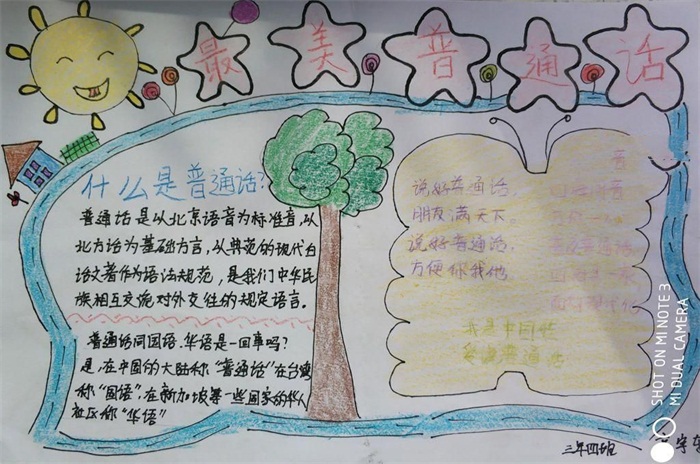 最美普通话
什么是普通话?
普通话是以北京语音为标准音,以
北方话为基础方言,以典范的现代白
话文著作为语法规范,是我们中华民
族相互交流对外交往的规定语言。
普通话同国语.华语是一回事吗?
是,在中国的大陆称"普通话"在台湾
称"国语",在新加坡等一些国家的华人
社区称"华语"
说好普通话,
朋友满天下。
说好普通话,
方便你我他。
我是中国娃
爱说普通话
三年四班
SHOT ON MI NOTE 3
MI DUAL CAMERA